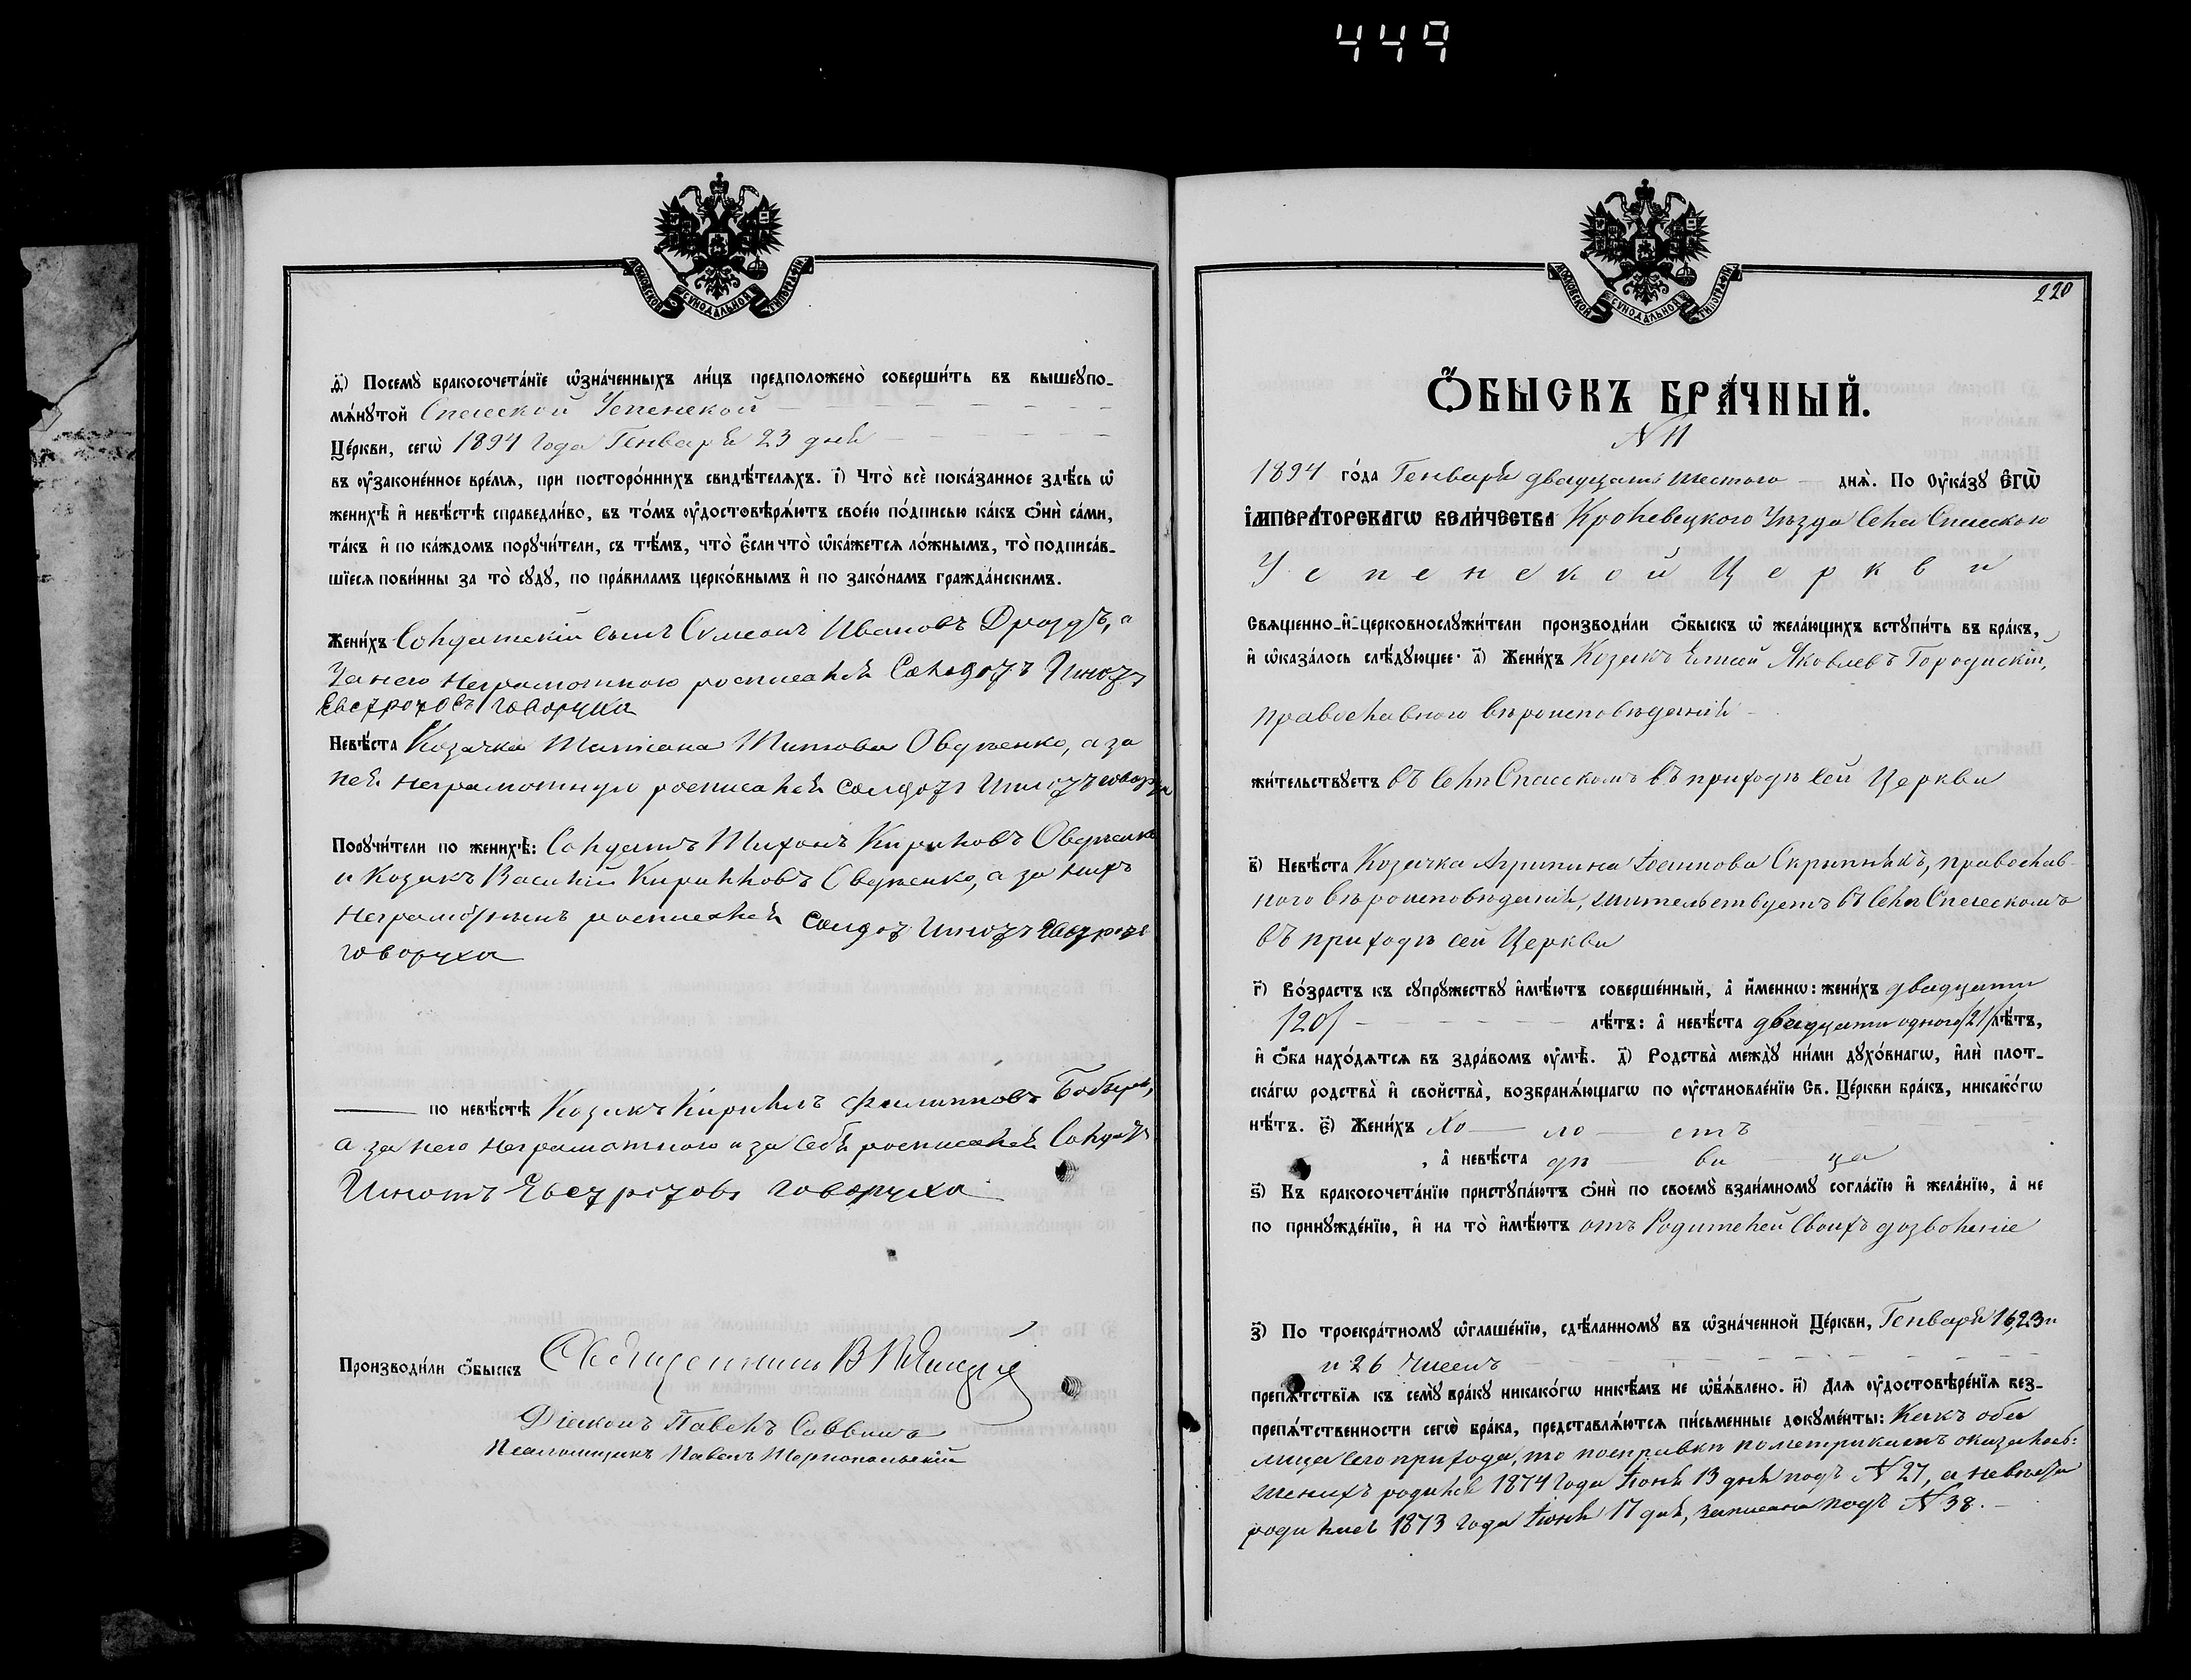 449
МОСКОВСКОЙ СѴНОДАЛЬНОЙ ТИПОГРАФІИ
д҃і) Посемꙋ̀ бракосочета́нїе ѡ҆зна́ченныхъ ли́цъ предположено̀ соверши́ть въ вышеꙋпо-
мѧ́нꙋтой Спасской Успенской
Це́ркви, сегѡ̀ 1894 года Генваря 23 дня
въ ᲂу҆законе́нное вре́мѧ, при посторо́ннихъ свидѣ́телѧхъ. і҃) Что̀ всѐ пока́занное здѣ́сь ѡ҆
женихѣ̀ и҆ невѣ́стѣ справедли́во, въ то́мъ ᲂу҆достовѣрѧ́ютъ свое́ю по́дписью ка́къ ѻ҆нѝ са́ми,
та́къ и҆ по ка́ждомъ порꙋчи́тели, съ тѣ́мъ, что̀ є҆́сли что̀ ѡ҆ка́жетсѧ ло́жнымъ, то̀ подписа́в-
шїесѧ пови́нны за то̀ сꙋдꙋ̀, по пра́виламъ церко́внымъ и҆ по зако́намъ гражда́нскимъ.
Жени́хъ Солдатскій сынъ Симеонъ Ивановъ Дроздъ, а
за него неграмотного росписался Солдатъ Игнатъ
Евстратовъ Говоруха
Невѣ́ста Козачка Татіана Титова Овдіенко, а за
нея неграмотную росписался солдатъ Игнатъ Говоруха
Порꙋчи́тели по женихѣ̀: Солдатъ Тихонъ Кириловъ Овдіенко
и Козакъ Василій Кириловъ Овдіенко, а за нихъ
неграмотныхъ росписался солдатъ Игнатъ Евстратовъ
Говоруха
по невѣ́стѣ Козакъ Кирилъ Филипповъ
а за него неграмотного и за себя росписался Солдатъ
Игнатъ Евстратовъ Говоруха
Производи́ли ѻ҆́быскъ Священникъ В
Діаконъ Павелъ Саввичъ
Псаломщикъ Павелъ Тарнопольскій
МОСКОВСКОЙ СѴНОДАЛЬНОЙ ТИПОГРАФІИ
220
Ѻ҆́БЫСКЪ БРА́ЧНЫЙ.
N 11
1894 го́да Генваря двадцать шестого днѧ̀. По Оу҆ка́зꙋ Є҆ГѠ̀
І҆МПЕРА́ТОРСКАГѠ ВЕЛИ́ЧЕСТВА Кролевецкого Уѣзда Села Спасского
Успенской Церкви
Свѧщенно-и҆-церковнослꙋжи́тели производи́ли ѻ҆́быскъ ѡ҆ жела́ющихъ встꙋпи́ть въ бра́къ,
и҆ ѡ҆каза́лось слѣ́дꙋющее: а҃) Жени́хъ Козакъ Елисей Яковлевъ Городискій,
православного вѣроисповѣданія
жи́тельствꙋетъ въ Селѣ Спасскомъ въ приходѣ сей Церкви
в҃) Невѣ́ста Козачка Агрипина Іоаннова Скрипникъ, православ-
ного вѣроисповѣданія, жительствуетъ въ Селѣ Спасскомъ
въ приходѣ сей Церкви
г҃) Во́зрастъ къ сꙋпрꙋ́жествꙋ и҆мѣ́ютъ соверше́нный, а҆ и҆́меннѡ: жени́хъ двадцати
/20/ лѣ́тъ: а҆ невѣ́ста двадцати одного /21/ лѣ́тъ,
и҆ ѻ҆́ба нахо́дѧтсѧ въ здра́вомъ ᲂу҆мѣ̀. д҃) Родства̀ междꙋ̀ ни́ми дꙋхо́внагѡ, и҆лѝ плот-
ска́гѡ родства̀ и҆ свойства̀, возбранѧ́ющагѡ по ᲂу҆становле́нїю Св. Це́ркви бра́къ, никако́гѡ
нѣ́тъ. є҃) Жени́хъ хо ло стъ
, а҆ невѣ́ста дѣ ви ца
ѕ҃) Къ бракосочета́нїю пристꙋпа́ютъ ѻ҆нѝ по своемꙋ̀ взаи́мномꙋ согла́сїю и҆ жела́нїю, а҆ не
по принꙋжде́нїю, и҆ на то̀ и҆мѣ́ютъ отъ Родителей своихъ дозволеніе
з҃) По троекра́тномꙋ ѡ҆глаше́нїю, сдѣ́ланномꙋ въ ѡ҆зна́ченной Це́ркви, Генваря 16, 23 и
и 26 чиселъ
препѧ́тствїѧ къ семꙋ̀ бра́кꙋ никако́гѡ никѣ́мъ не ѡ҆б̾ѧ́влено. и҃) Длѧ ᲂу҆достовѣре́нїѧ без-
препѧ́тственности сегѡ̀ бра́ка, представлѧ́ютсѧ пи́сьменные докꙋме́нты: Какъ оба
лица сего прихода, то посправкѣ по метрикамъ оказалось:
женихъ родился 1874 года Іюня 13 дня подъ N 27, а невѣста
родилась 1873 года Іюня 17 дня, записана подъ N 38.